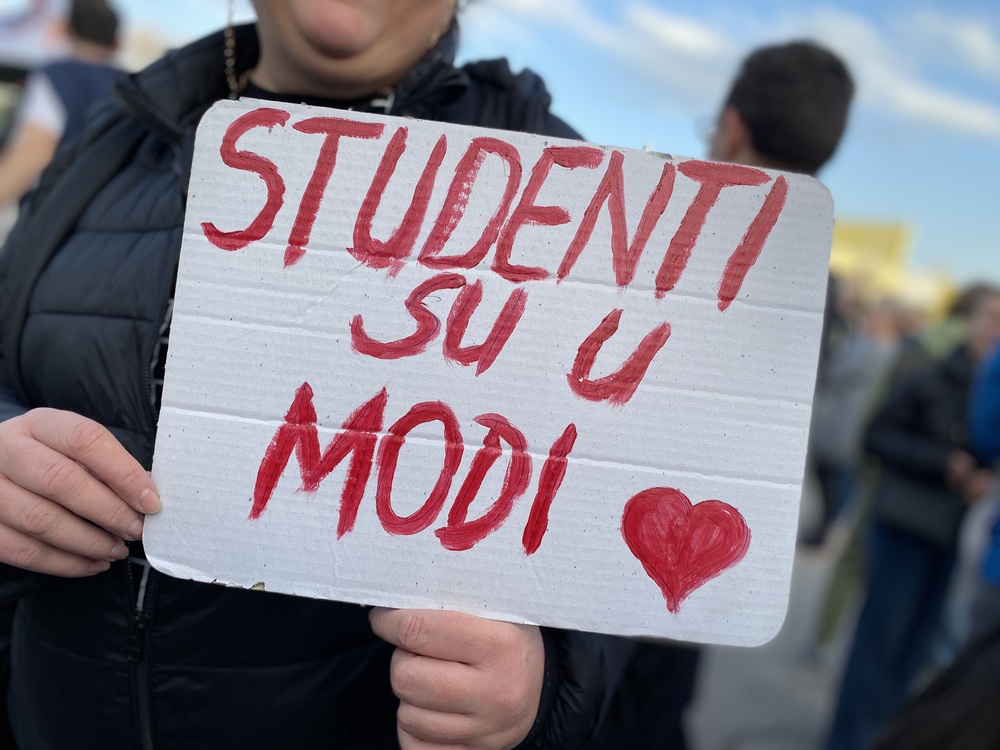 STUDENTI
SU U
MODI